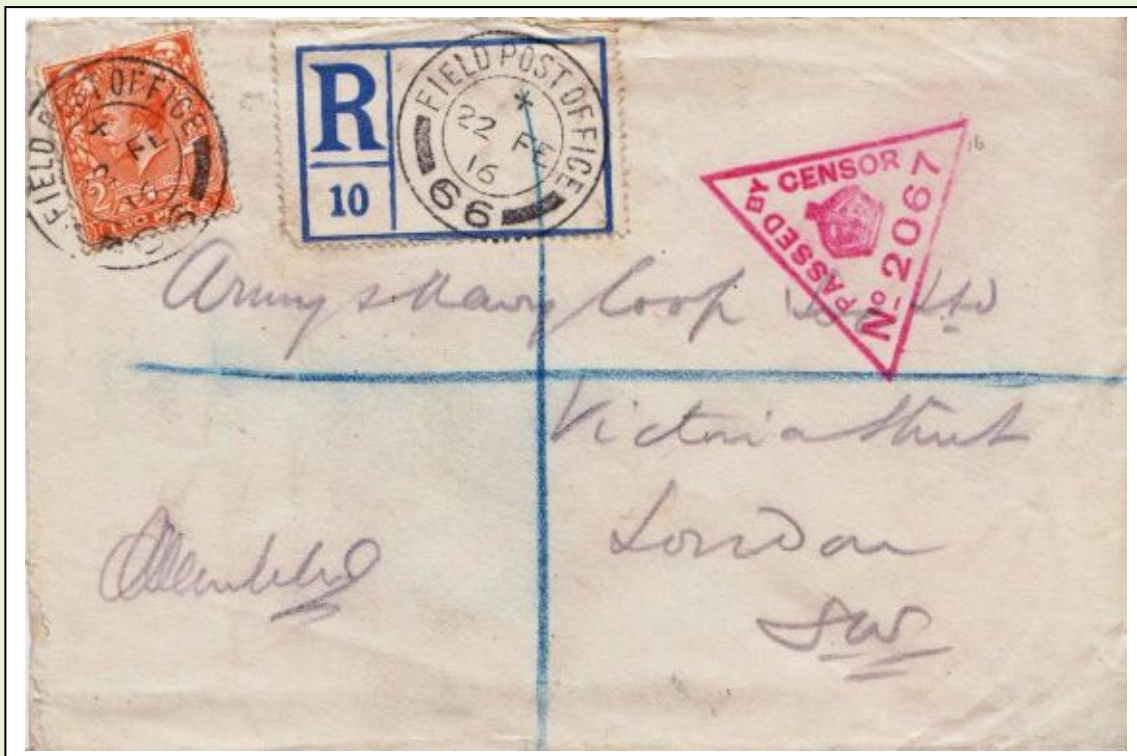 FIELD POST OFFICE
FE
16
2
R
10
FIELD POST OFFICE
*
22 FE
16
66
PASSED BY CENSOR
No 2067
Army & Navy Coop Ltd
Victoria Street
London
SW